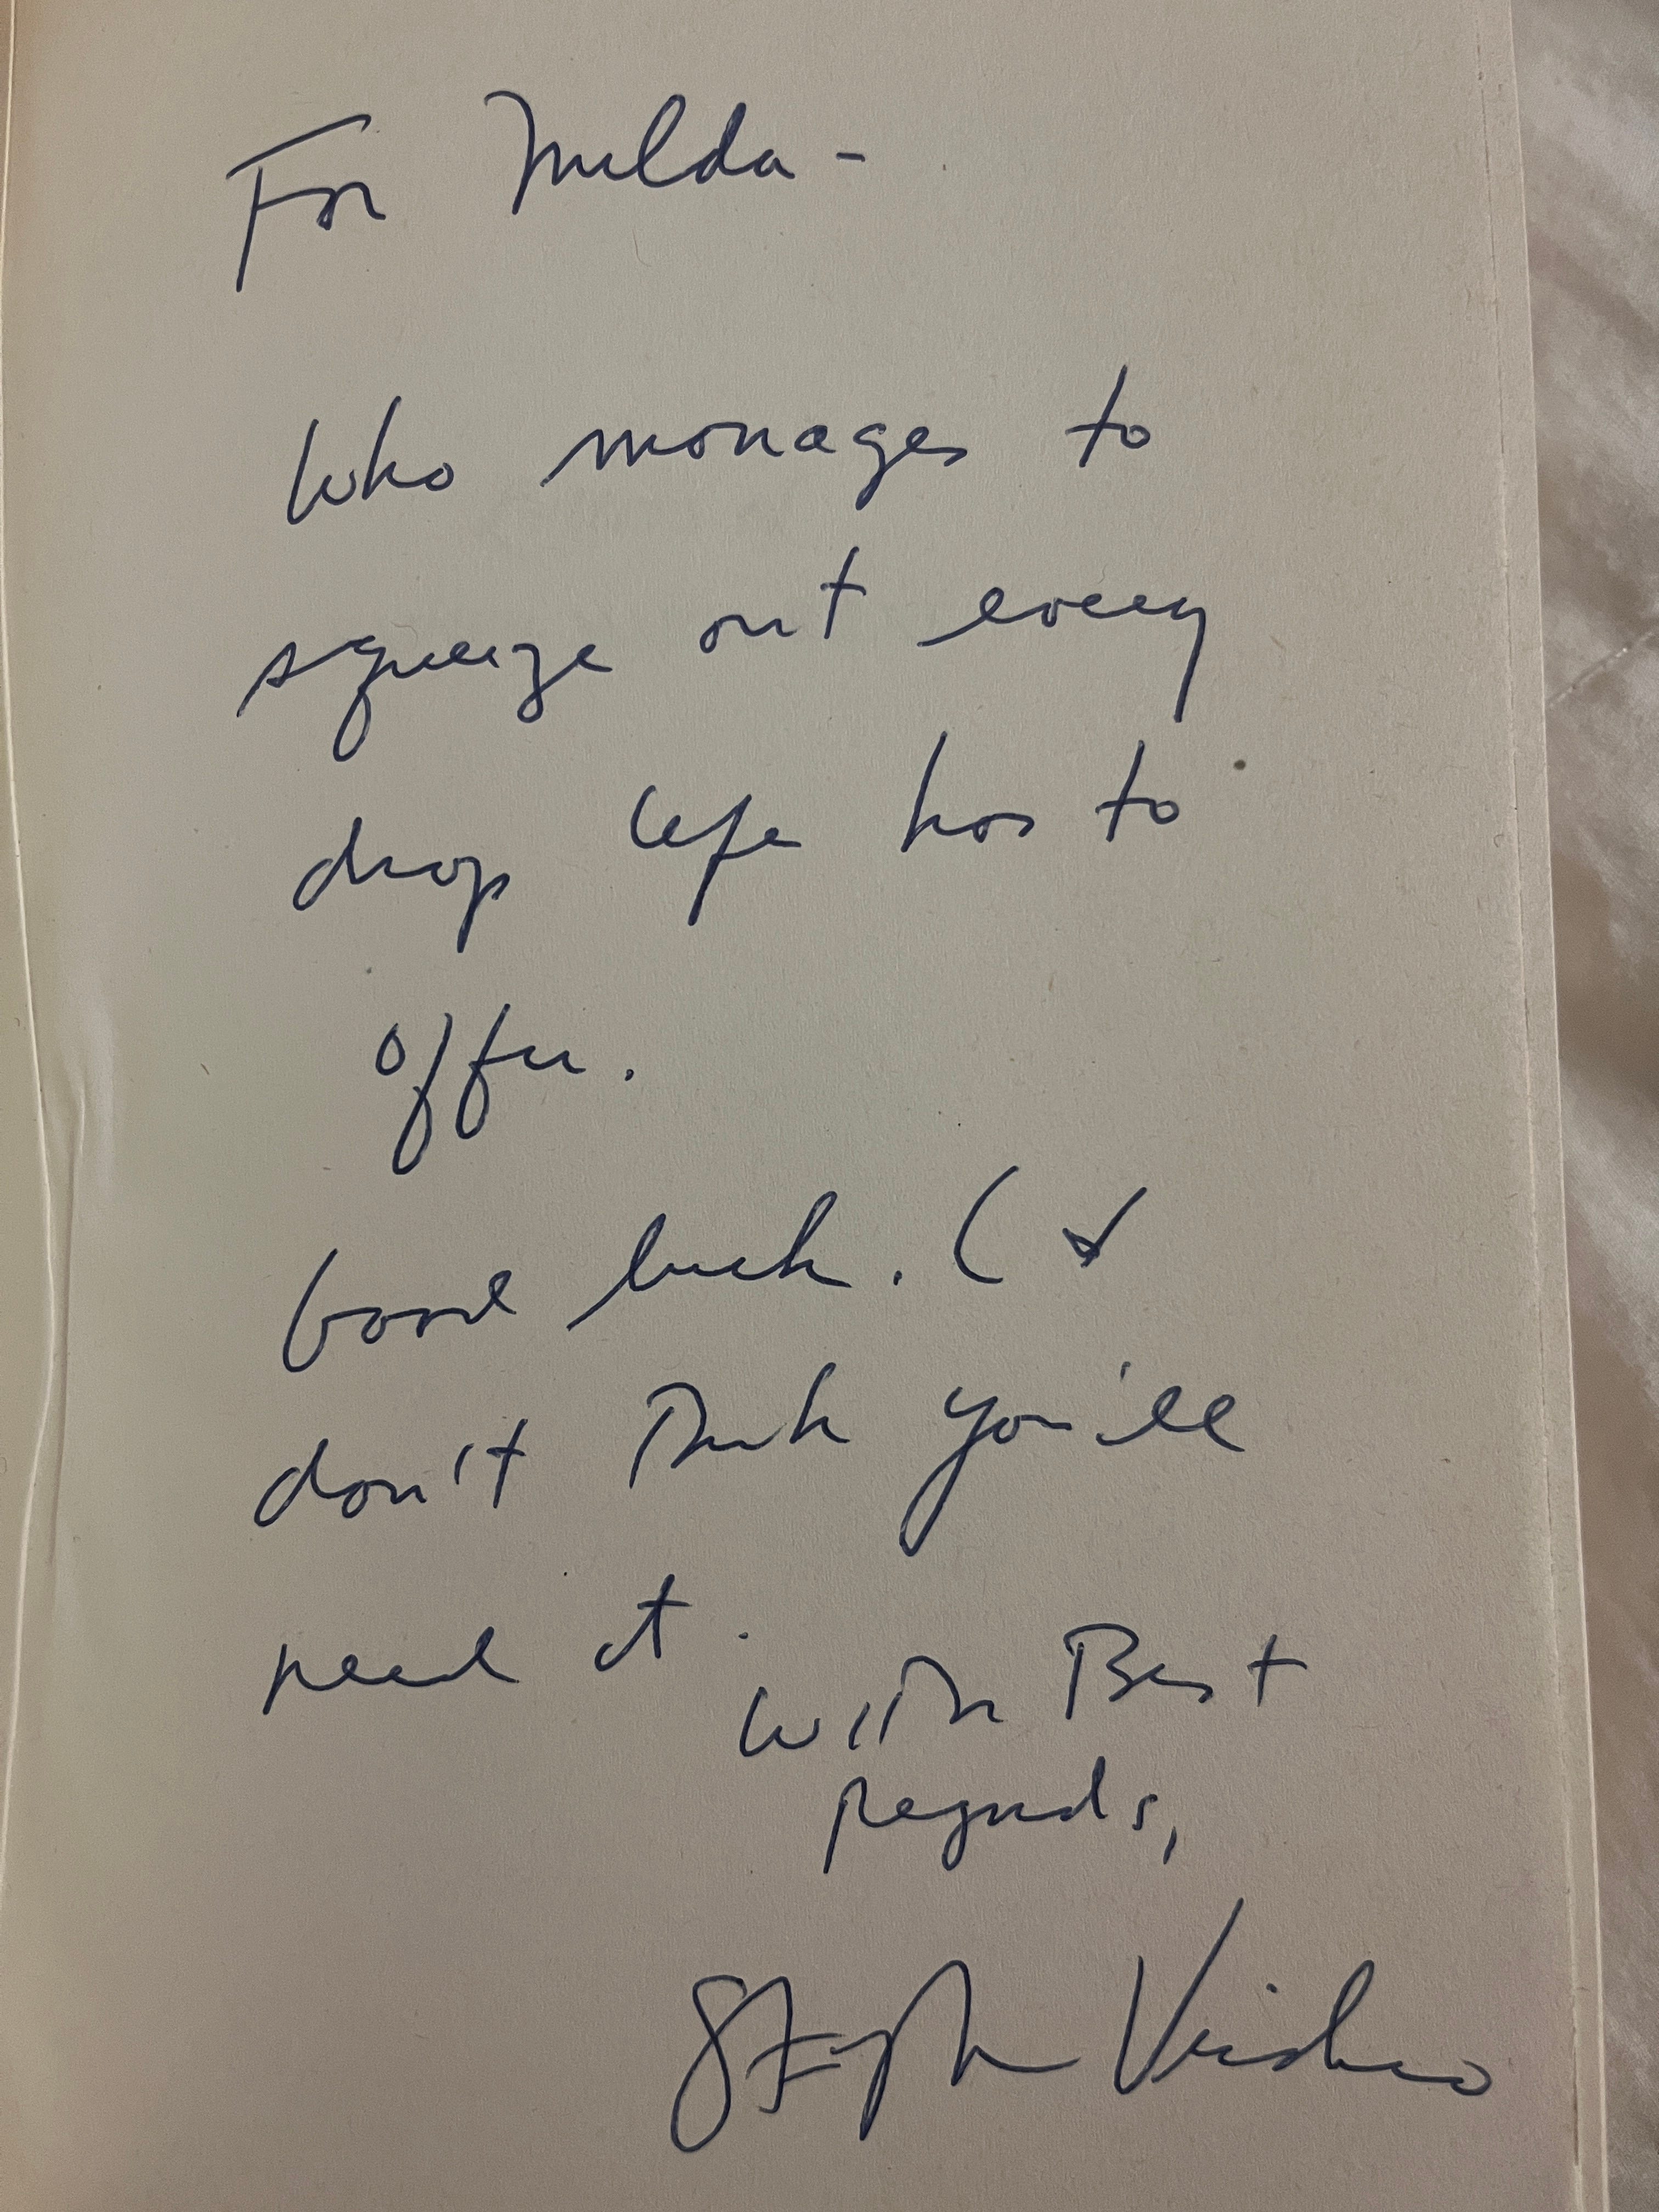 For Milda -
Who manages to
squeeze out every
drop life has to
offer.
Good luck. (I
don't think you'll
need it.
With Best
Regards,
Stephen